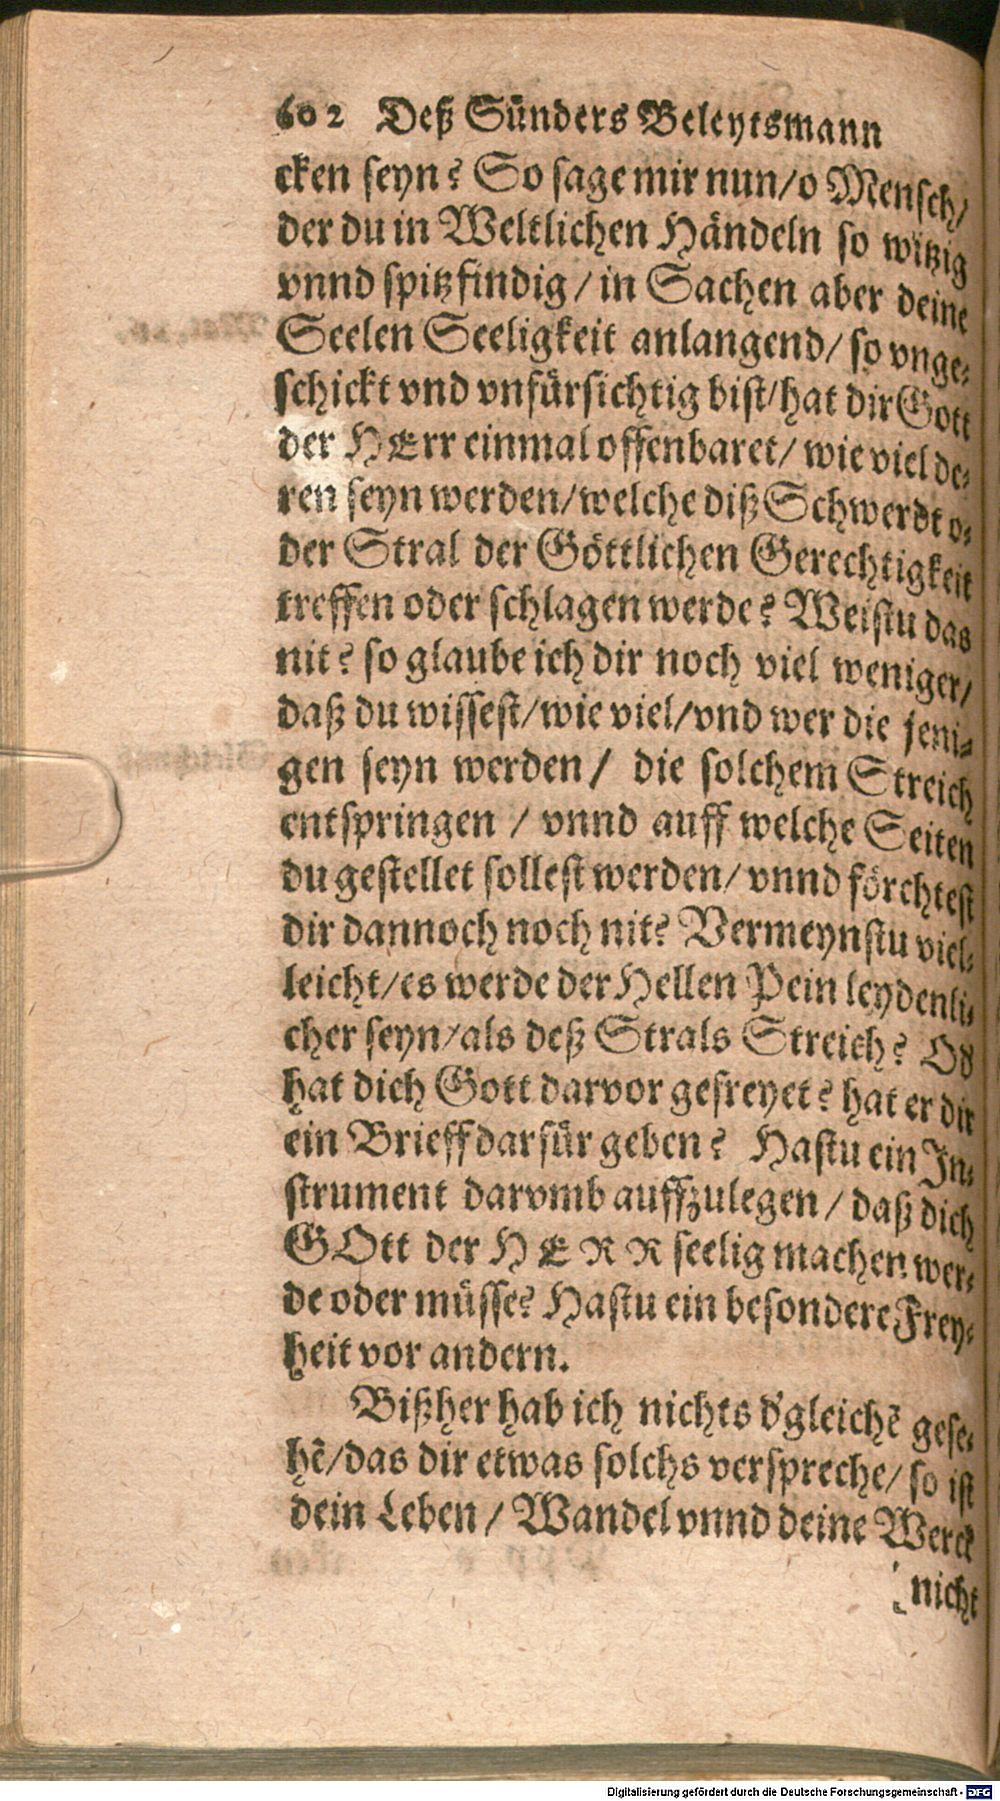 602 Deß Sünders Beleytsmann
cken seyn? So sage mir nun/o Mensch/
der du in Weltlichen Händeln so witzig
vnnd spitzfindig / in Sachen aber deine
Seelen Seeligkeit anlangend/ so vnge⸗
schickt vnd vnfürsichtig bist/hat dir Gott
der HErr einmal offenbaret/ wie viel de⸗
ren seyn werden/welche diß Schwerdt o⸗
der Stral der Göttlichen Gerechtigkeit
treffen oder schlagen werde? Weistu das
nit? so glaube ich dir noch viel weniger/
daß du wissest/wie viel/vnd wer die jeni⸗
gen seyn werden / die solchem Streich
entspringen / vnnd auff welche Seiten
du gestellet sollest werden/ vnnd förchtest
dir dannoch noch nit? Vermeynstu viel⸗
leicht/es werde der Hellen Pein leydenli⸗
cher seyn/als deß Strals Streich? Od
hat dich Gott darvor gefreyet? hat er dir
ein Brieff darfür geben? Hastu ein In⸗
strument darvmb auffzulegen / daß dich
GOtt der HERR seelig machen wer⸗
de oder müsse? Hastu ein besondere Frey⸗
heit vor andern.
Bißher hab ich nichts d'gleichẽ gese⸗
hẽ/das dir etwas solchs verspreche/ so ist
dein Leben / Wandel vnnd deine Werck
nicht
Digitalisierung gefördert durch die Deutsche Forschungsgemeinschaft - DFG